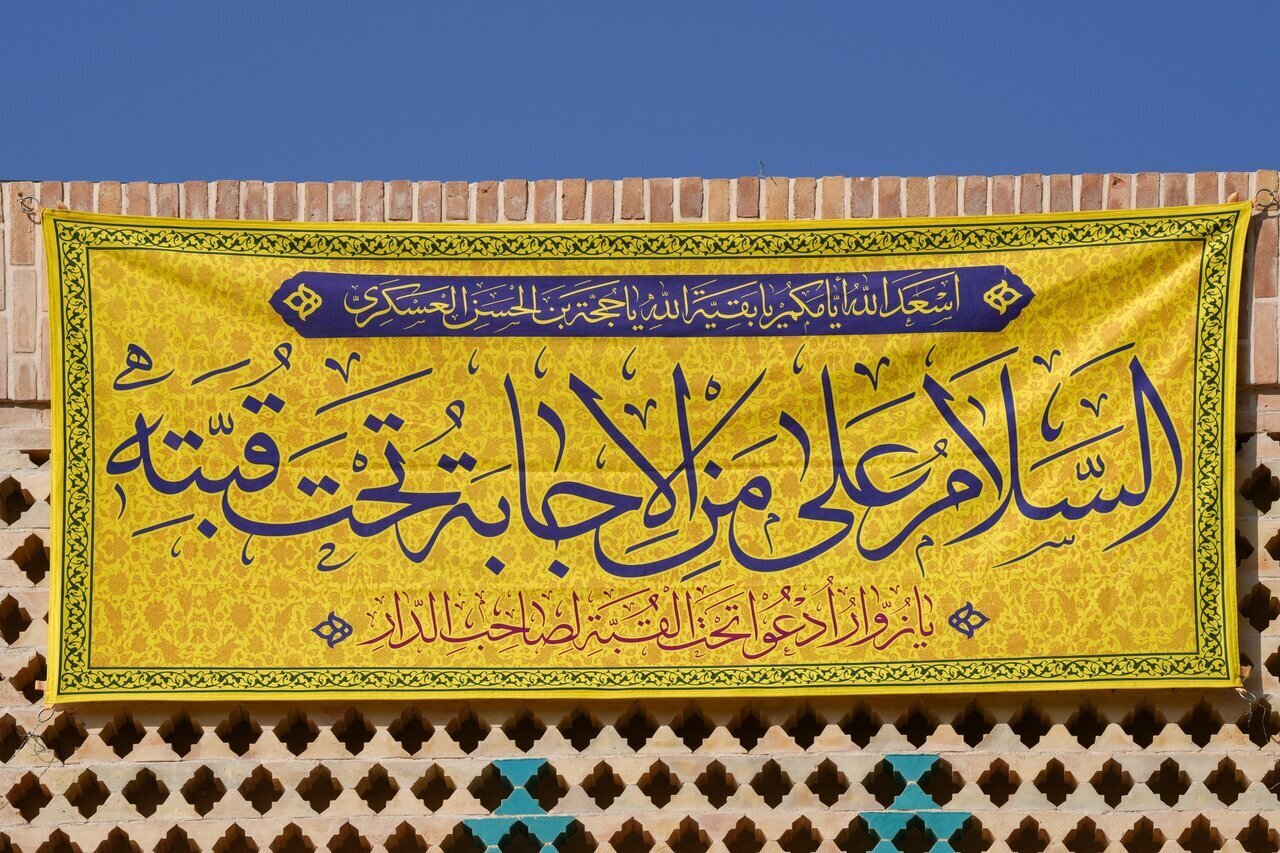 اسعد الله أيامكم يا بقية الله يا حجة بن الحسن العسكري
السلام على من الإجابة تحت قبته
يا زوار أدعوا تحت القبة لصاحب الدار